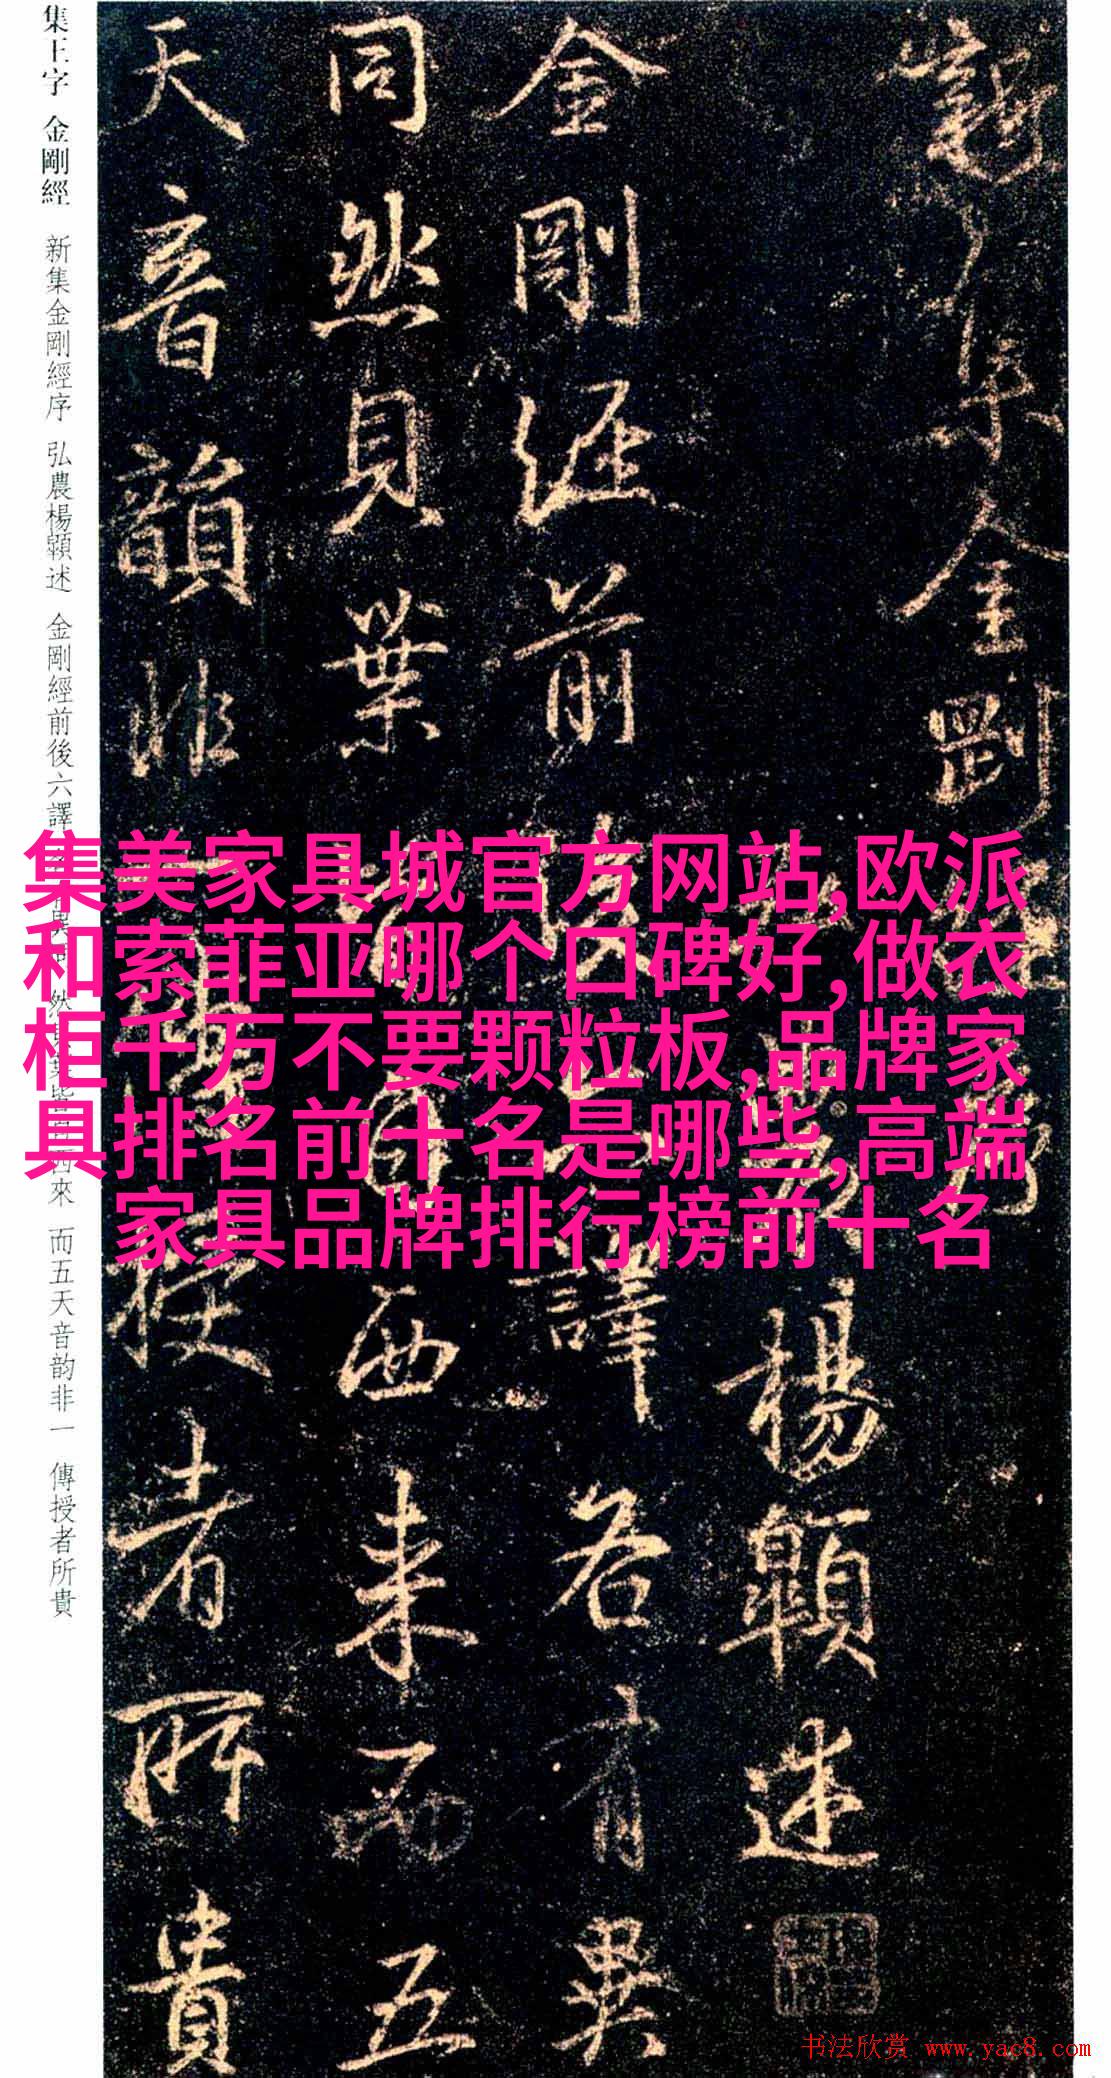 集王字 金剛經 新集金剛經序 弘農楊顗述 金剛經前後六譯 來 而五天音韵非一 傳授者所貴
新集金剛
楊顗述
金剛經前 譯各有異
同然貝葉 西来而五
天音韻非 授者所貴
集美家具城官方网站,欧派
和索菲亚哪个口碑好,做衣
柜千万不要颗粒板,品牌家
具排名前十名是哪些,高端
家具品牌排行榜前十名
书法欣赏 www.yac8.com